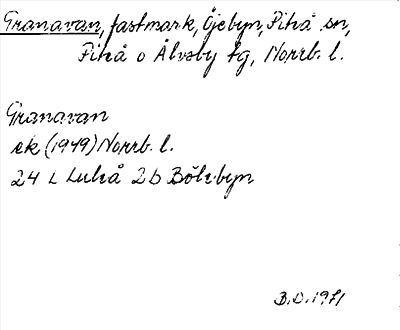 Granavan, fastmark, Öjebyn, Piteå sn,
Piteå o Älvsby tg, Norrb. l.
Granavan
ek (1949) Norrb. l.
24 L Luleå 2b Bölebyn
B.O. 1971